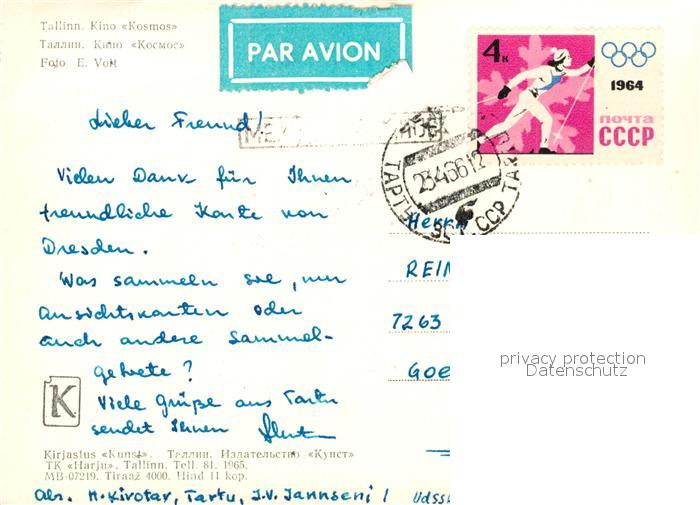 Tallinn. Kino «Kosmos»
Таллин. Кино «Космос»
Foto E. Volt
PAR AVION
4к
1964
почта
СССР
Lieber Freund!
23466 12
ТАРТУ
ССР
Vielen Dank für Ihnen
freundliche Karte von
Dresden.
Was sammeln sie, nur
Ansichtskarten oder
auch andere Sammel-
gebiete?
Viele Grüße aus Tartu
sendet Ihnen
K
Herrn
REIN
7263
GOE
privacy protection
Datenschutz
Kirjastus «Kunst». Таллин. Издательство «Кунст»
TK «Harju». Tallinn. Tell. 81. 1965.
MB-07219. Tiraaž 4000. Hind 11 kop.
Abs. H. Kivotar, Tartu, J.V. Jannseni 1 UdSSR